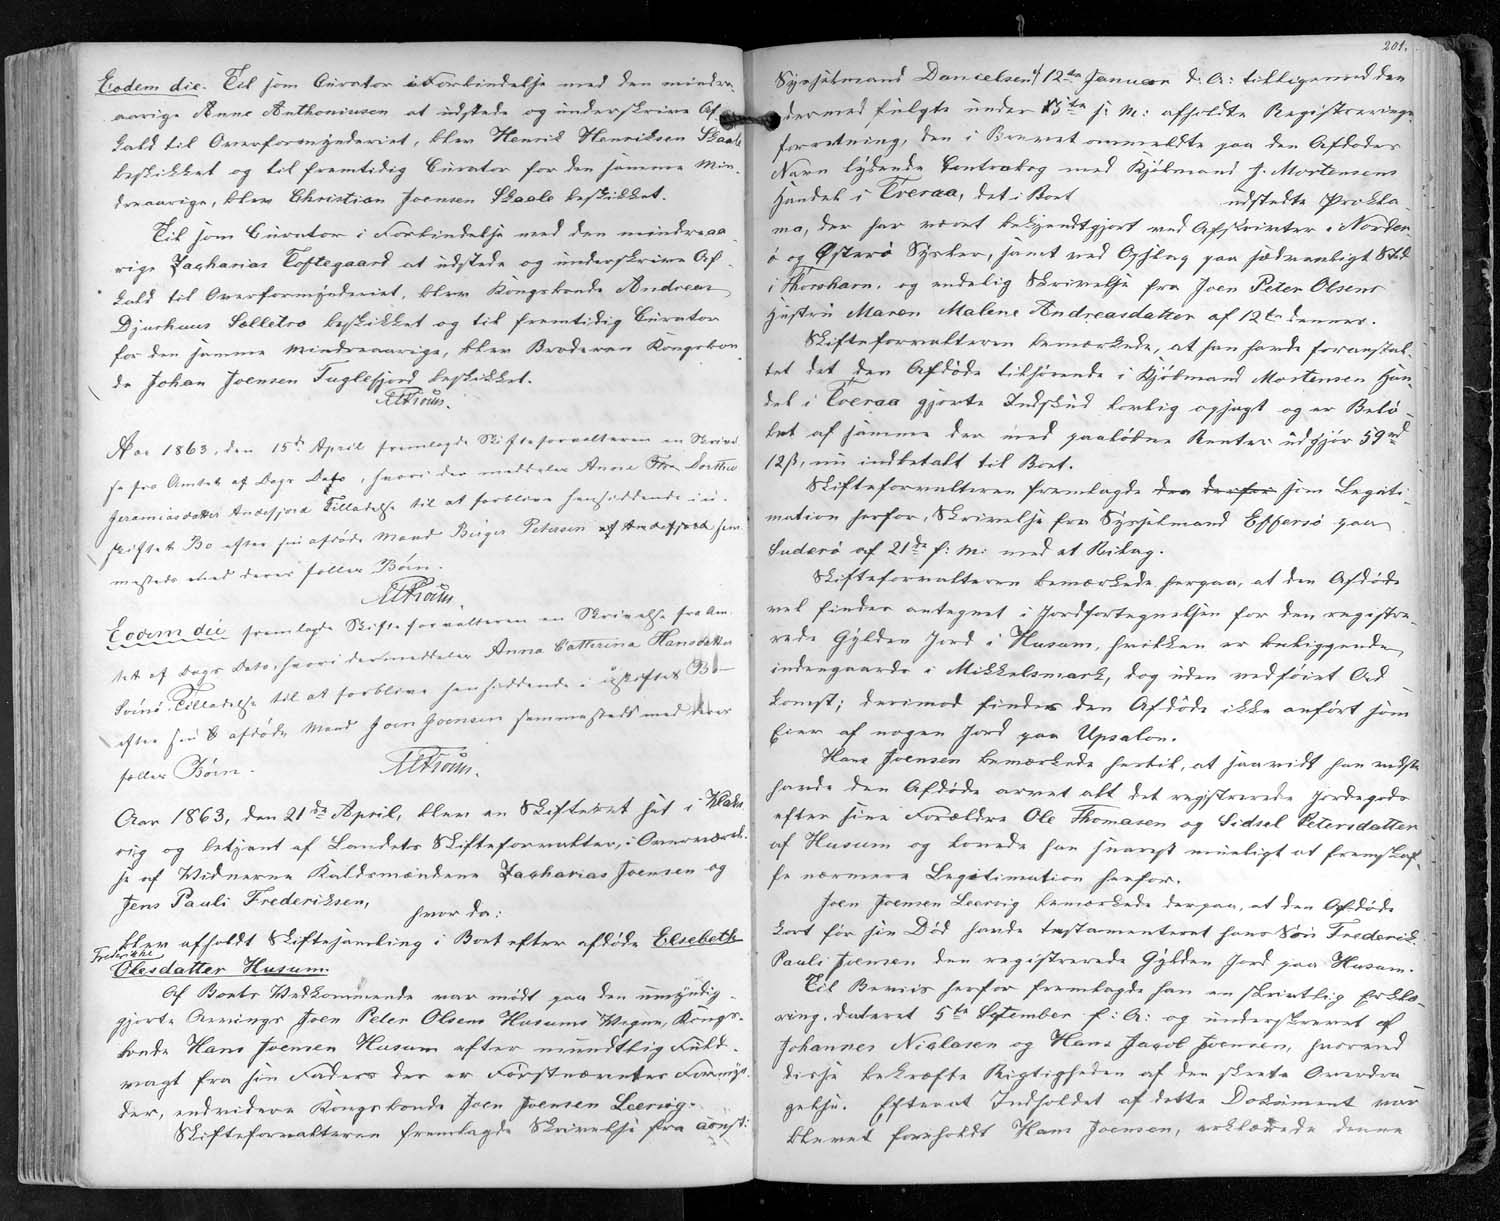 Eodem die. Til som Curator i Forbindelse med den mindre-
aarige Anne Anthoniusen at udstede og underskrive Af-
kald til Overformynderiet, blev Henrik Henriksen Skaale
beskikket og til fremtidig Curator for den samme Min-
dreaarige, blev Christian Joensen Skaale beskikket.
Til som Curator i Forbindelse med den mindreaa-
rige Zacharias Toftegaard at udstede og underskrive Af-
kald til Overformynderiet, blev Kongsbonde Andreas
Djurhuus Selletræ beskikket og til fremtidig Curator
for den samme Mindreaarige, blev Broderen Kongsbon-
de Johan Joensen Fuglefjord beskikket.
Aar 1863, den 15de April fremlagde Skifteforvalteren en Skrivel-
se fra Amtet af Dags Dato, hvori der meddeles Anna Dorthea
Jeremiasdatter Andefjord Tilladelse til at forblive hensiddende i u-
skiftet Bo efter sin afdøde Mand Birger Petersen af Andefjord sam-
mesteds med deres fælles Børn.
Eodem die fremlagde Skifteforvalteren en Skrivelse fra Am-
tet af Dags Dato, hvori der meddeles Anna Cathrina Hansdatter
Svinø Tilladelse til at forblive hensiddende i uskiftet Bo
efter sin afdøde Mand Joen Joensen sammesteds med deres
fælles Børn.
Aar 1863, den 21de April, blev en Skifteret sat i Klaks-
vig og betjent af Landets Skifteforvalter, i Overværel-
se af Vidnerne Kaldsmændene Zacharias Joensen og
Jens Pauli Frederiksen,
hvor da:
blev afholdt Skiftesamling i Boet efter afdøde Elsebeth
Frederikke
Olesdatter Husum.
Af Boets Vedkommende var mødt paa den umyndig-
gjorte Arvings Joen Peter Olsens Husums Vegne, Kongs-
bonde Hans Joensen Husum efter mundtlig Fuld-
magt fra sin Fader der er Førstnævntes Formyn-
der, endvidere Kongsbonde Joen Joensen Leervig.
Skifteforvalteren fremlagde Skrivelse fra const:
201.
Sysselmand Danielsen af 12te Januar d: A: tilligemed den
dermed fulgte under 13de s: M: afholdte Registrerings-
forretning, den i Brevet ommeldte paa den Afdødes
Navn lydende Contrabog med Kjøbmand J. Mortensens
Handel i Tveraa, det i Boet udstedte Prokla-
ma, der har været bekjendtgjort ved Afskrifter i Norder-
ø og Østerø Sysler, samt ved Opslag paa sædvanligt Sted
i Thorshavn, og endelig Skrivelse fra Joen Peter Olsens
Hustru Maren Malene Andreasdatter af 12te dennes.
Skifteforvalteren bemærkede, at han havde foranstal-
tet det den Afdøde tilhørende i Kjøbmand Mortensens Han-
del i Tveraa gjorte Indskud lovlig opsagt og er Belø-
bet af samme der med paaløbne Renter udgjør 59rd
12ß, nu indbetalt til Boet.
Skifteforvalteren fremlagde som Legiti-
mation herfor, Skrivelse fra Sysselmand Effersø paa
Suderø af 21de f: M: med et Bilag.
Skifteforvalteren bemærkede herpaa, at den Afdøde
vel findes antegnet i Jordfortegnelsen for den registre-
rede Gylden Jord i Husum, hvilken er beliggende
indengaards i Mikkelsmark, dog uden vedføiet Ad-
komst; derimod findes den Afdøde ikke anført som
Eier af nogen Jord paa Upsalon.
Hans Joensen bemærkede hertil, at saavidt han vidste
havde den Afdøde arvet alt det registrerede Jordegods
efter sine Forældre Ole Thomasen og Sidsel Petersdatter
af Husum og lovede han snarest mueligt at fremskaf-
fe nærmere Legitimation herfor.
Joen Joensen Leervig bemærkede derpaa, at den Afdøde
kort før sin Død havde testamenteret hans Søn Frederik
Pauli Joensen den registrerede Gylden Jord paa Husum.
Til Beviis herfor fremlagde han en skriftlig Erklæ-
ring, dateret 5te September f: A: og underskrevet af
Johannes Niclasen og Hans Jacob Joensen, hvorved
disse bekræfte Rigtigheden af den skete Overdra-
gelse. Efterat Indholdet af dette Dokument var
blevet foreholdt Hans Joensen, erklærede denne